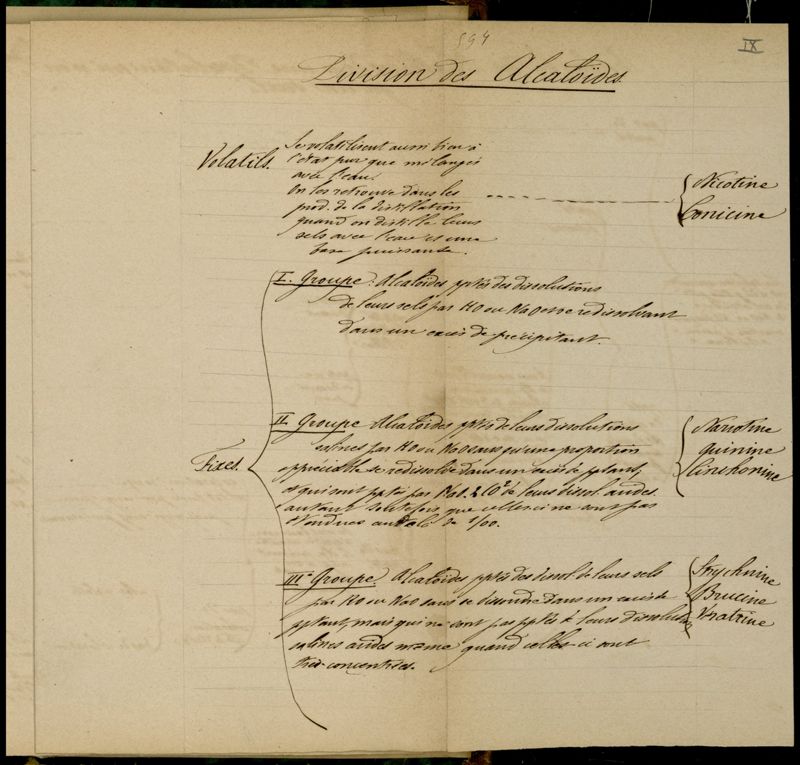 594
IX
Division des Alcaloïdes.
Volatils.
Se volatilisent aussi bien à
l'état pur que mélangés
avec l'eau.
On les retrouve dans les
prod. de la distillation
quand on distille leurs
sels avec l'eau et une
base puissante.
Nicotine
Conicine
Fixes.
I. Groupe: Alcaloïdes pptés des dissolutions
de leurs sels par KO ou NaO et se redissolvant
dans un excès de précipitant.
II. Groupe Alcaloïdes pptés de leurs dissolutions
salines par KO ou NaO sans qu'une proportion
appréciable se redissolve dans un excès de pptant,
et qui sont pptés par NaO. 2 CO² de leurs dissol. acides.
autant toutefois que celles-ci ne sont pas
étendues au delà de 1/100.
Narcotine
Quinine
Cinchonine
III. Groupe: Alcaloïdes pptés des dissol. de leurs sels
par KO ou NaO sans se dissoudre dans un excès de
pptant, mais qui ne sont pas pptés de leurs dissolutions
salines acides même quand celles-ci sont
très concentrées.
Strychnine
Brucine
Vératrine